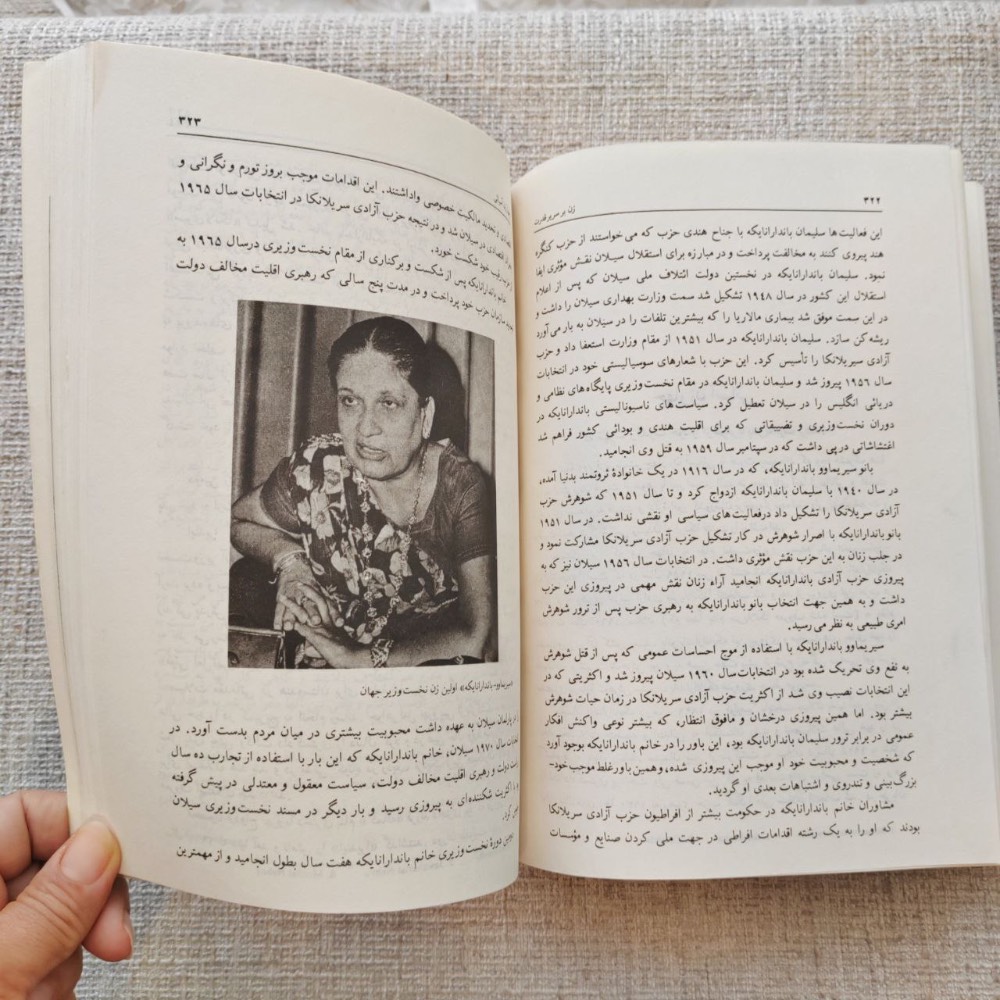 ۳۲۲
زن بر سریر قدرت
این فعالیت‌ها سلیمان باندارانایکه با جناح هندی حزب که می‌خواستند از حزب کنگره
هند پیروی کنند به مخالفت پرداخت و در مبارزه برای استقلال سیلان نقش مؤثری ایفا
نمود. سلیمان باندارانایکه در نخستین دولت ائتلاف ملی سیلان که پس از اعلام
استقلال این کشور در سال ۱۹۴۸ تشکیل شد سمت وزارت بهداری سیلان را داشت و
در این سمت موفق شد بیماری مالاریا را که بیشترین تلفات را در سیلان به بار می‌آورد
ریشه کن سازد. سلیمان باندارانایکه در سال ۱۹۵۱ از مقام وزارت استعفا داد و حزب
آزادی سریلانکا را تأسیس کرد. این حزب با شعارهای سوسیالیستی خود در انتخابات
سال ۱۹۵۶ پیروز شد و سلیمان باندارانایکه در مقام نخست‌وزیری پایگاه‌های نظامی و
دریائی انگلیس را در سیلان تعطیل کرد. سیاست‌های ناسیونالیستی باندارانایکه در
دوران نخست‌وزیری و تضییقاتی که برای اقلیت هندی و بودائی کشور فراهم شد
اغتشاشاتی درپی داشت که در سپتامبر سال ۱۹۵۹ به قتل وی انجامید.
بانو سیریماوو باندارانایکه، که در سال ۱۹۱۶ در یک خانوادهٔ ثروتمند بدنیا آمده،
در سال ۱۹۴۰ با سلیمان باندارانایکه ازدواج کرد و تا سال ۱۹۵۱ که شوهرش حزب
آزادی سریلانکا را تشکیل داد درفعالیت‌های سیاسی او نقشی نداشت. در سال ۱۹۵۱
بانو باندارانایکه با اصرار شوهرش در کار تشکیل حزب آزادی سریلانکا مشارکت نمود و
در جلب زنان به این حزب نقش مؤثری داشت. در انتخابات سال ۱۹۵۶ سیلان نیز که به
پیروزی حزب آزادی باندارانایکه انجامید آراء زنان نقش مهمی در پیروزی این حزب
داشت و به همین جهت انتخاب بانو باندارانایکه به رهبری حزب پس از ترور شوهرش
امری طبیعی به نظر می‌رسید.
سیریماوو باندارانایکه با استفاده از موج احساسات عمومی که پس از قتل شوهرش
به نفع وی تحریک شده بود در انتخابات سال ۱۹۶۰ سیلان پیروز شد و اکثریتی که در
این انتخابات نصیب وی شد از اکثریت حزب آزادی سریلانکا در زمان حیات شوهرش
بیشتر بود. اما همین پیروزی درخشان و مافوق انتظار، که بیشتر نوعی واکنش افکار
عمومی در برابر ترور سلیمان باندارانایکه بود، این باور را در خانم باندارانایکه بوجود آورد
که شخصیت و محبوبیت خود او موجب این پیروزی شده، و همین باور غلط موجب خود-
بزرگ‌بینی و تندروی و اشتباهات بعدی او گردید.
مشاوران خانم باندارانایکه در حکومت بیشتر از افراطیون حزب آزادی سریلانکا
بودند که او را به یک رشته اقدامات افراطی در جهت ملی کردن صنایع و مؤسسات
۳۲۳
و تحدید مالکیت خصوصی واداشتند. این اقدامات موجب بروز تورم و نگرانی و
اقتصادی در سیلان شد و در نتیجه حزب آزادی سریلانکا در انتخابات سال ۱۹۶۵
رقیب خود شکست خورد.
خانم باندارانایکه پس از شکست و برکناری از مقام نخست‌وزیری درسال ۱۹۶۵ به
حزب خود پرداخت و در مدت پنج سالی که رهبری اقلیت مخالف دولت
«سیریماوو- باندارانایکه»، اولین زن نخست وزیر جهان
پارلمان سیلان به عهده داشت محبوبیت بیشتری در میان مردم بدست آورد. در
سال ۱۹۷۰ سیلان، خانم باندارانایکه که این بار با استفاده از تجارب ده سال
دولت و رهبری اقلیت مخالف دولت، سیاست معقول و معتدلی در پیش گرفته
با اکثریت شکننده‌ای به پیروزی رسید و بار دیگر در مسند نخست‌وزیری سیلان
کرد.
دورهٔ نخست وزیری خانم باندارانایکه هفت سال بطول انجامید و از مهمترین